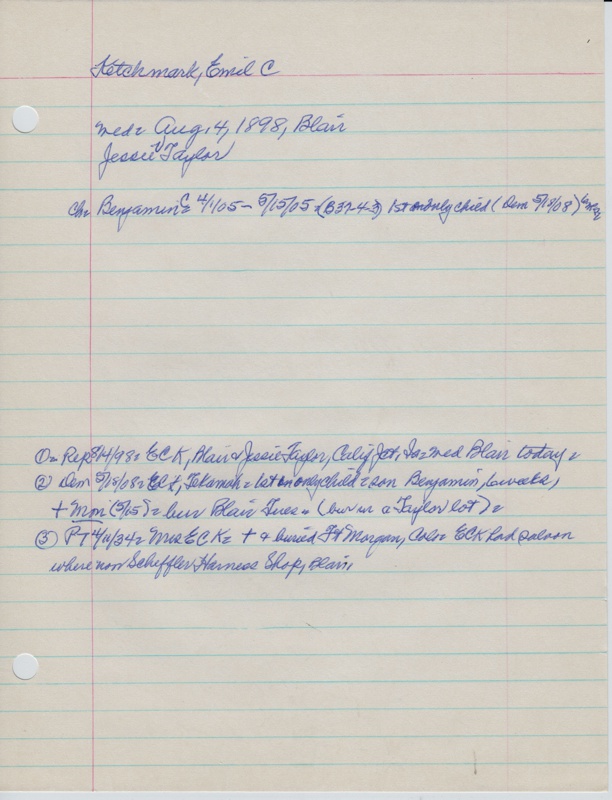 Ketchmark, Emil C
med = Aug. 4, 1898, Blair
Jessie V Taylor
Ch = Benjamin C = 4/1/05 - 5/15/05 = (B37-4-3) 1st only child (Dem 5/18/08)
① = Rep 8/4/98 = E C K, Blair & Jessie Taylor, Calif Jct, Ia = med Blair today =
② Dem 5/18/08 = E C K, Tekamah = 1st only child = son Benjamin, 6 weeks,
+ Mon (5/15) = bur Blair Tues = (bur in a Taylor lot) =
③ P-T 4/11/34 = Mrs E C K = + & buried Ft Morgan, Colo = E C K had saloon
where now Scheffler Harness Shop, Blair,